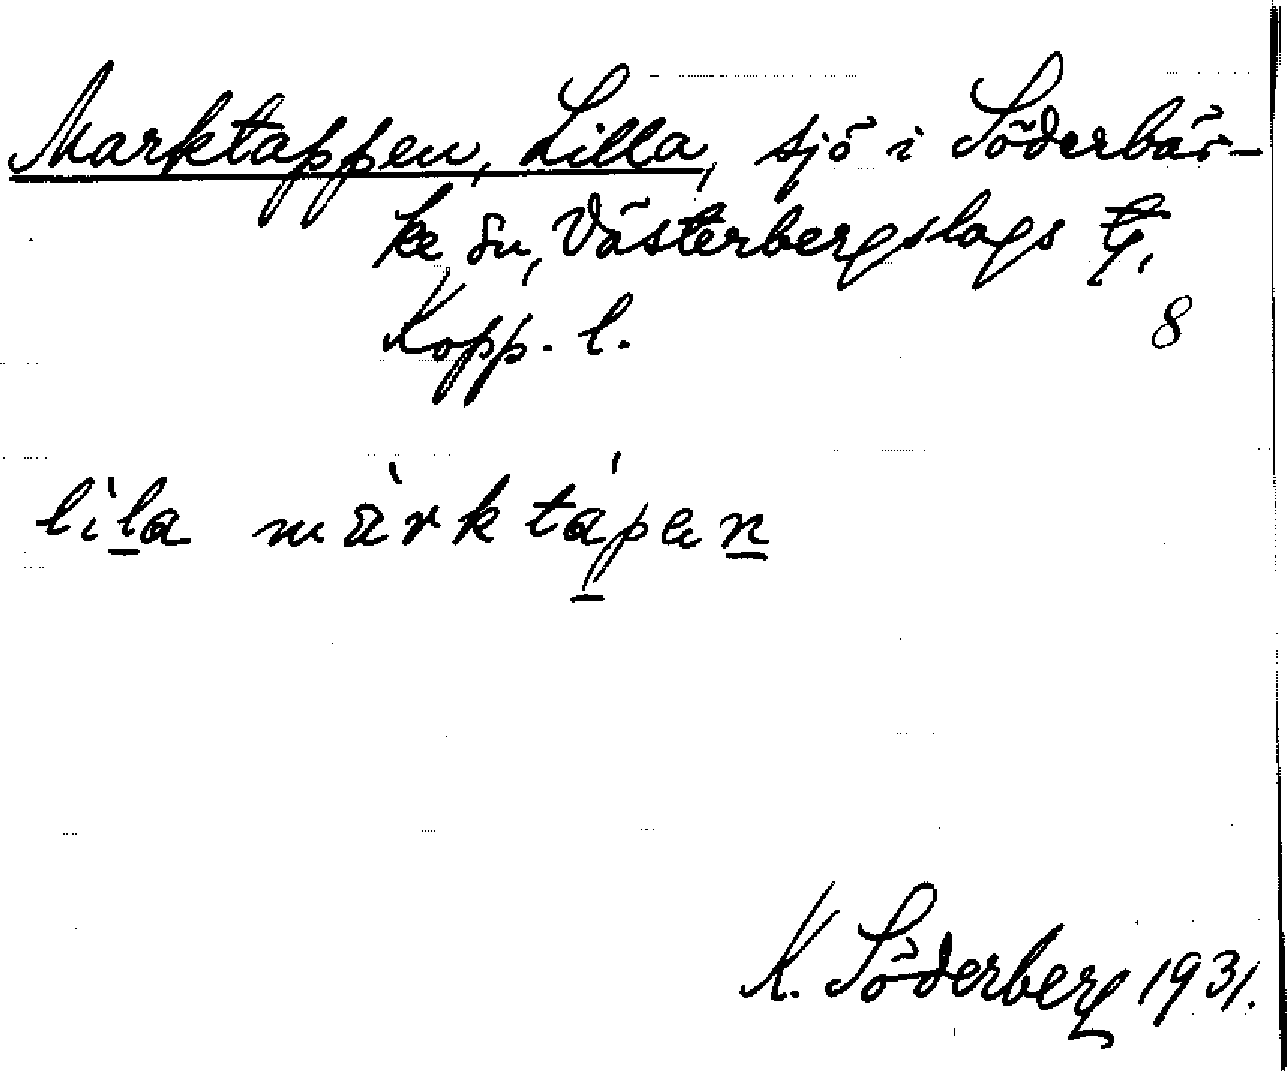 Marktappen, Lilla, sjö i Söderbär-
ke sn, Västerbergslags tg,
Kopp. l.
8
lìla màrktápen
K. Söderberg 1931.